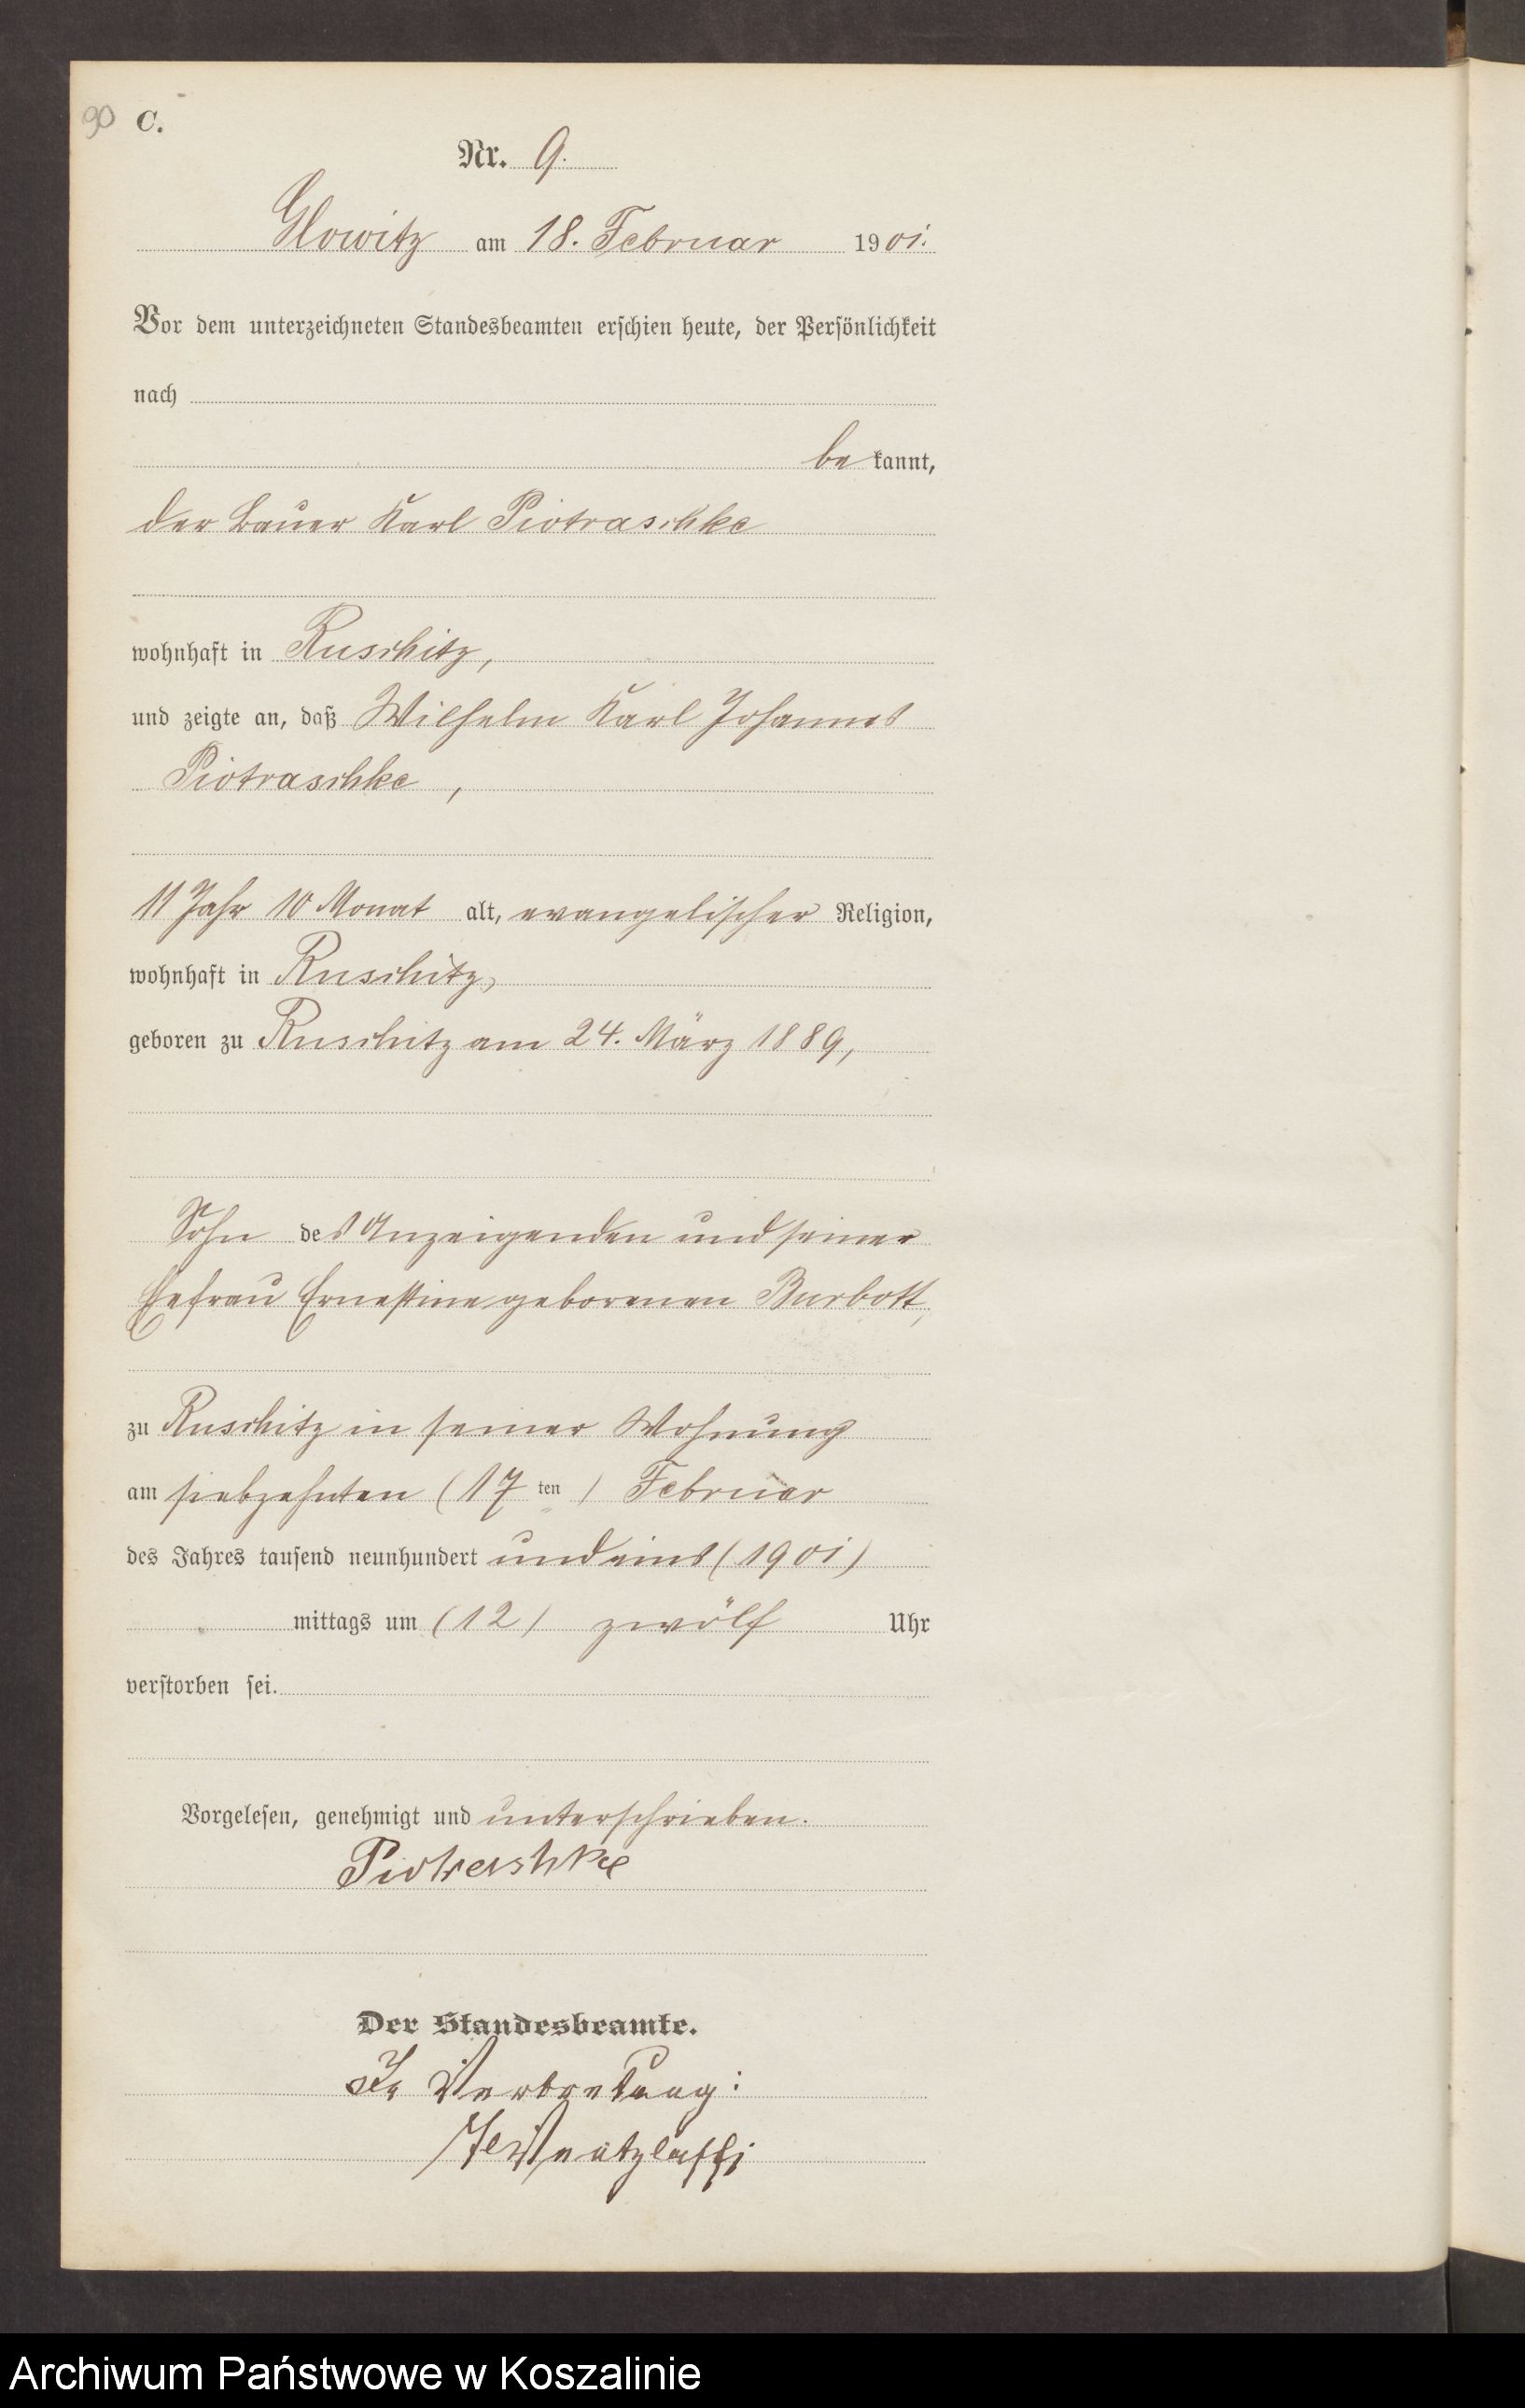 90 C.
Nr. 9.
Glowitz am 18. Februar 1901.
Vor dem unterzeichneten Standesbeamten erschien heute, der Persönlichkeit
nach
be kannt,
der Bauer Karl Piotraschke
wohnhaft in Ruschitz,
und zeigte an, daß Wilhelm Karl Johannes
Piotraschke,
11 Jahr 10 Monat alt, evangelischer Religion,
wohnhaft in Ruschitz,
geboren zu Ruschitz am 24. März 1889,
Sohn des Anzeigenden und seiner
Ehefrau Ernestine geborenen Burbott,
zu Ruschitz in seiner Wohnung
am siebzehnten (17 ten) Februar
des Jahres tausend neunhundert und eins (1901)
mittags um (12) zwölf Uhr
verstorben sei.
Vorgelesen, genehmigt und unterschrieben.
Piotraschke
Der Standesbeamte.
In Vertretung:
Archiwum Państwowe w Koszalinie